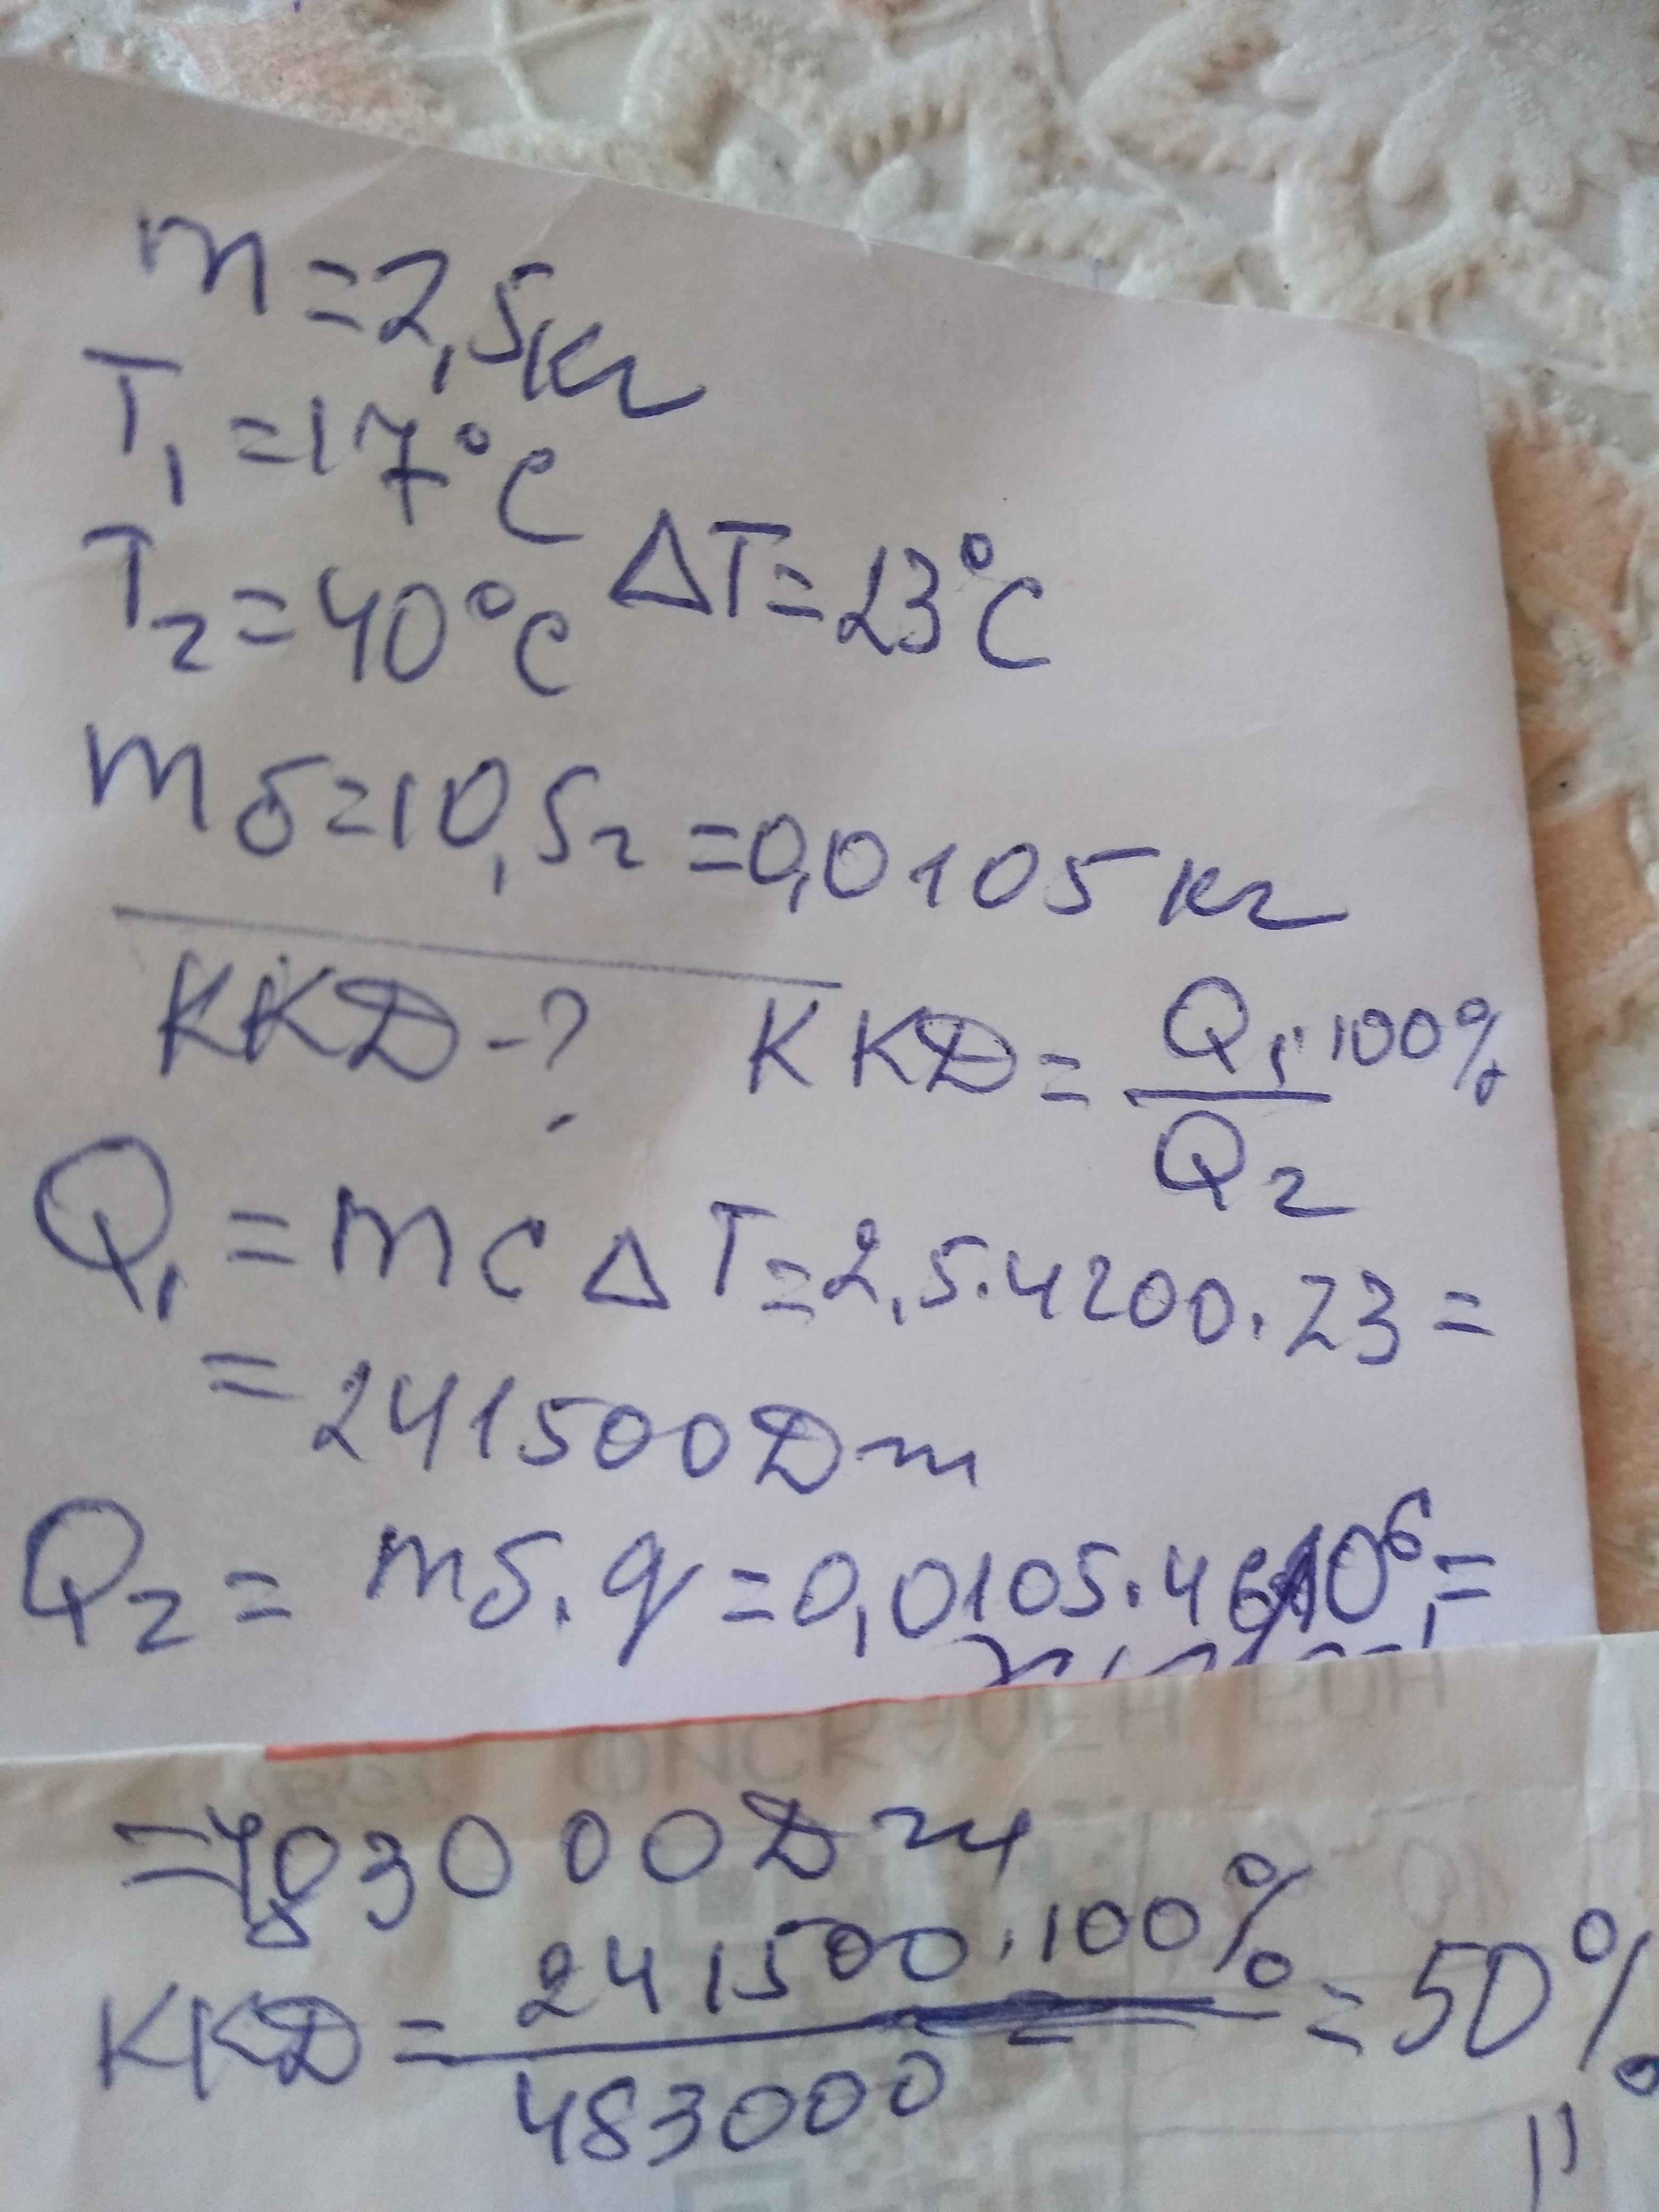 m=2,5кг
T₁=17°C
T₂=40°C ΔT=23°C
mб=10,5г=0,0105кг
ККД-? ККД=Q₁·100%/Q₂
Q₁=mcΔT=2,5·4200·23=
=241500Дж
Q₂=mб·q=0,0105·46·10⁶=
=483000Дж
ККД=241500·100%/483000=50%